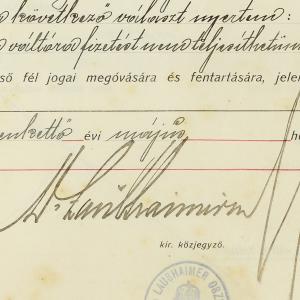 a következő választ nyertem:
a váltóra fizetést nem teljesíthetünk
ső fél jogai megóvására és fentartására, jelen
enkettő évi május h
Dr Laubhaimer
kir. közjegyző.
LAUBHAIMER OSZ